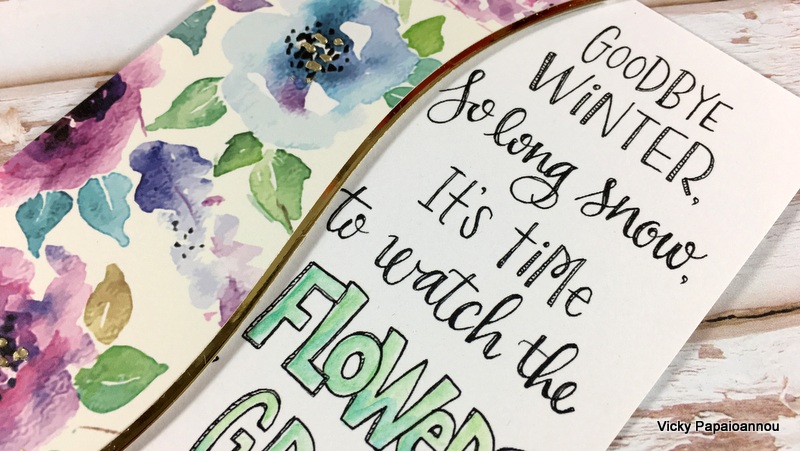 GOODBYE
WiNTER,
So long snow,
It's TiMe
to watch the
FLoWeRS
Vicky Papaioannou